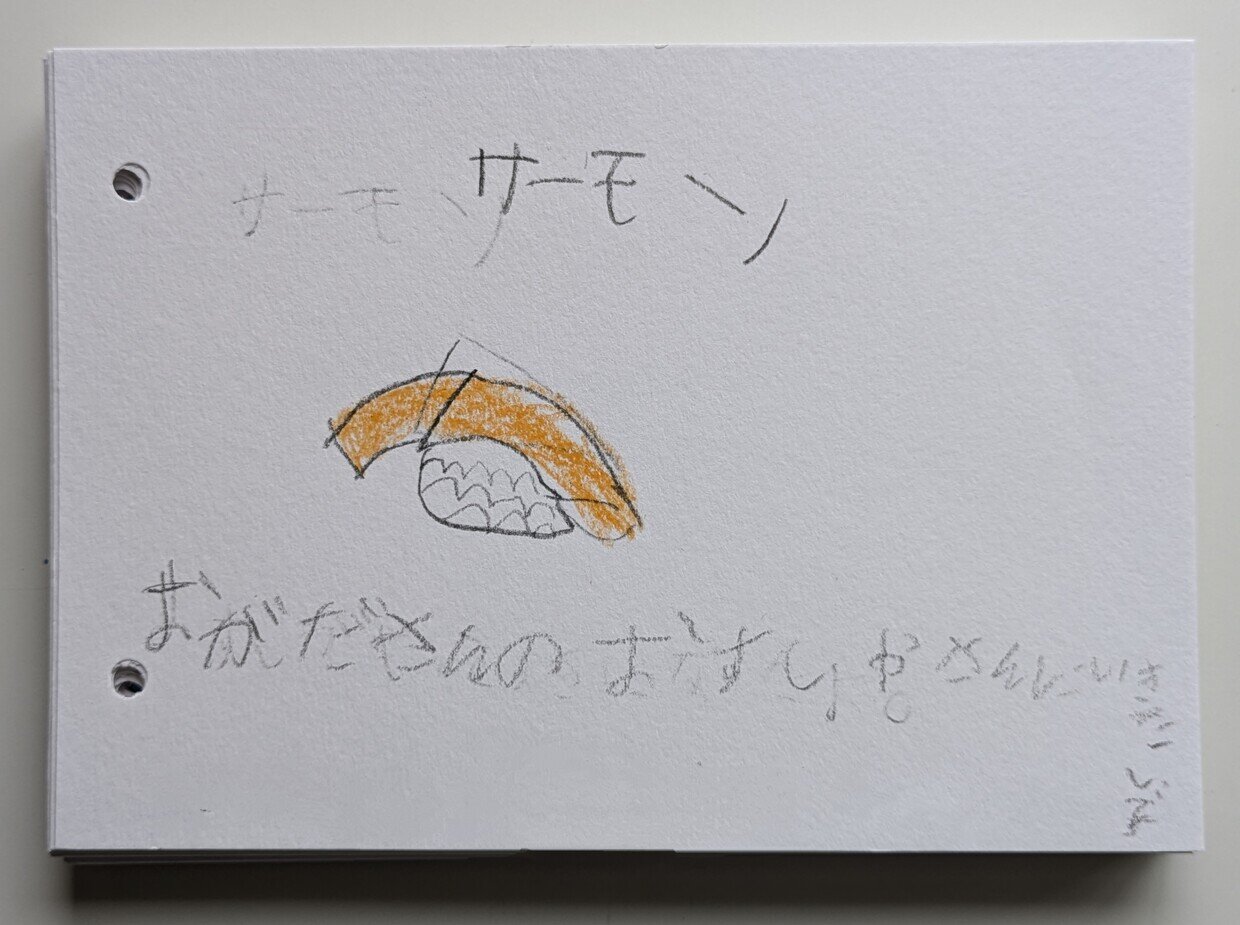 サーモン サーモン
おがださんのおすしやさんにいき